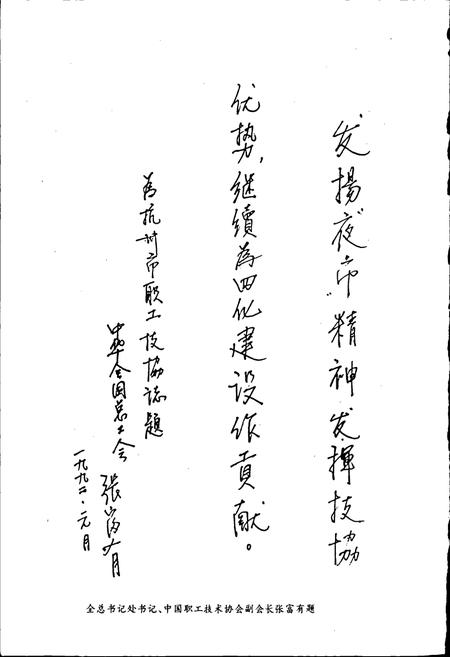 发揚"夜市"精神发揮技協
优势，继續為四化建设作貢献。
為杭州市职工技協誌題
中华全国总工会
張富有
一九九二·元月
全总书记处书记、中国职工技术协会副会长张富有题